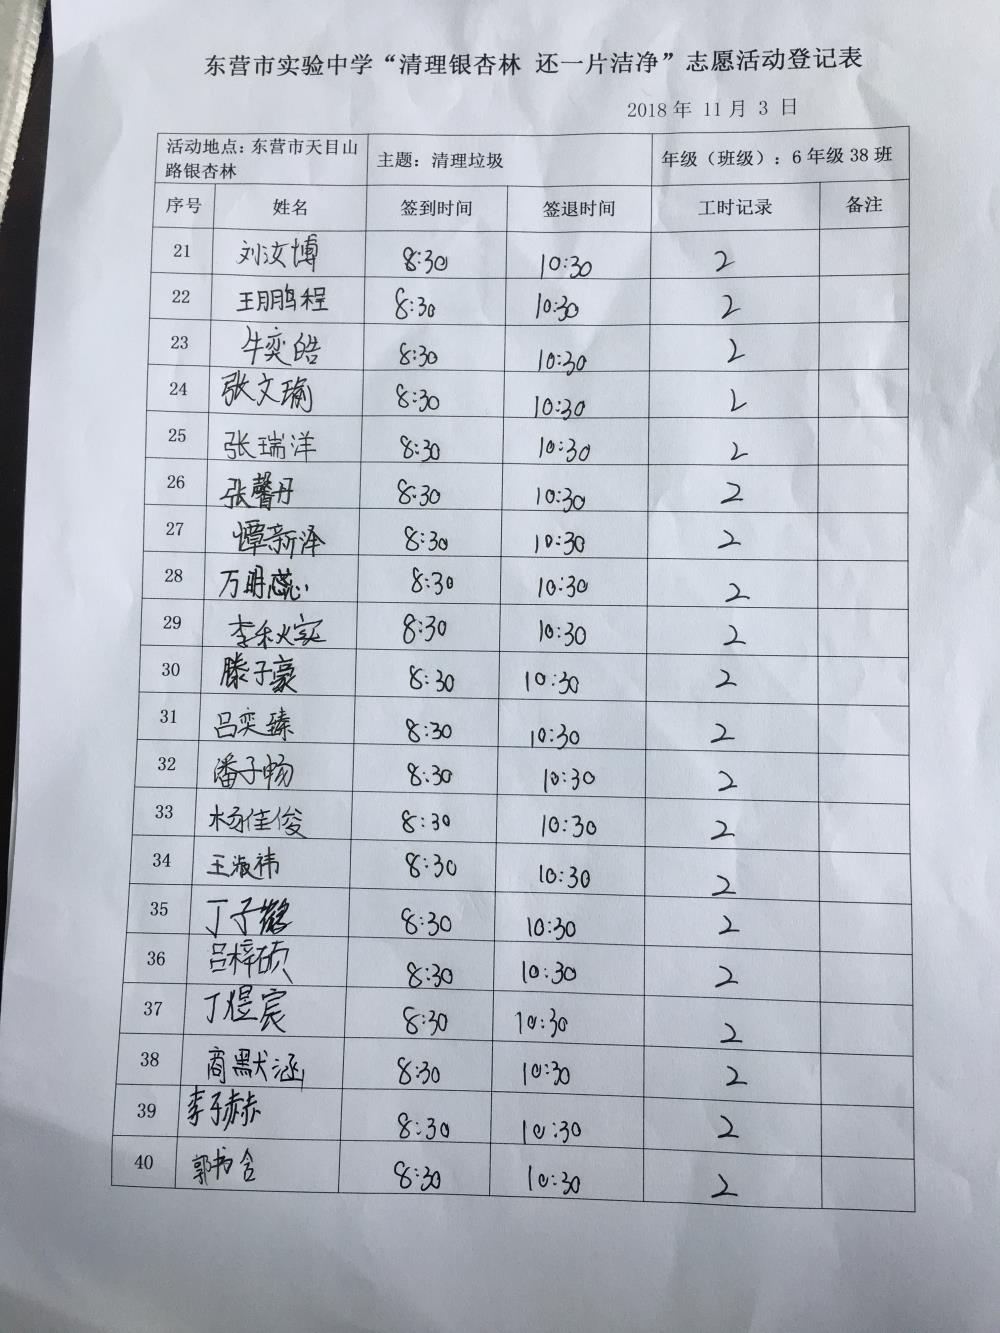 东营市实验中学“清理银杏林 还一片洁净”志愿活动登记表
2018 年 11 月 3 日
活动地点：东营市天目山路银杏林 主题：清理垃圾 年级（班级）：6 年级 38 班
序号 姓名 签到时间 签退时间 工时记录 备注
21 刘汶博 8:30 10:30 2
22 王鹏程 8:30 10:30 2
23 牛奕皓 8:30 10:30 2
24 张文瑜 8:30 10:30 2
25 张瑞洋 8:30 10:30 2
26 张馨丹 8:30 10:30 2
27 谭新泽 8:30 10:30 2
28 万明蕊 8:30 10:30 2
29 李秋家 8:30 10:30 2
30 滕子豪 8:30 10:30 2
31 吕奕臻 8:30 10:30 2
32 潘子畅 8:30 10:30 2
33 杨佳俊 8:30 10:30 2
34 王淑祎 8:30 10:30 2
35 丁子 8:30 10:30 2
36 吕梓硕 8:30 10:30 2
37 丁煜宸 8:30 10:30 2
38 商默涵 8:30 10:30 2
39 李子赫 8:30 10:30 2
40 郭书含 8:30 10:30 2